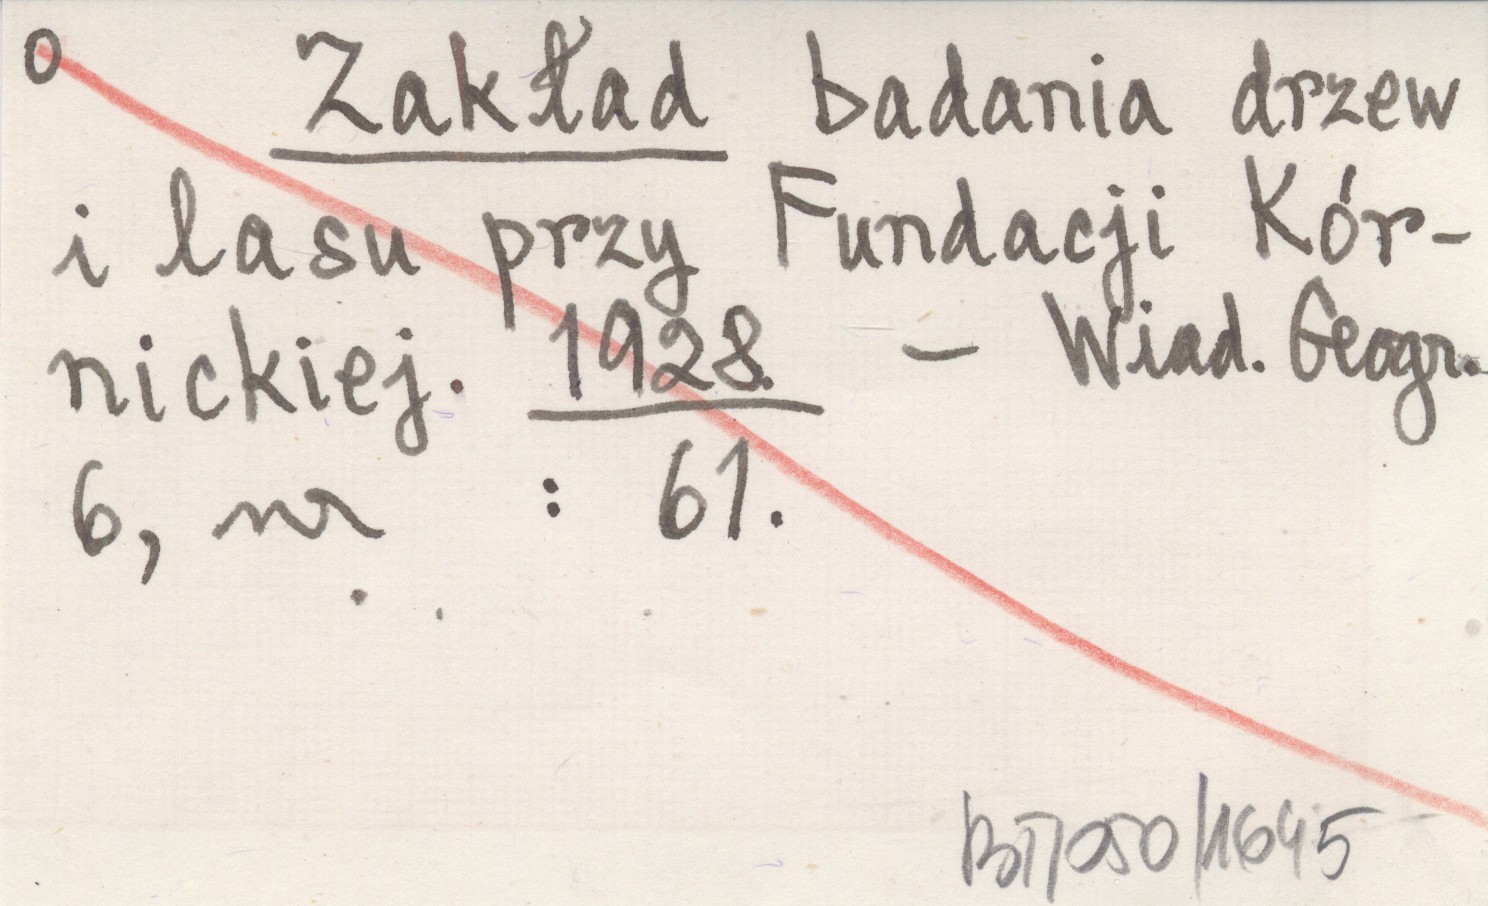 O Zakład badania drzew
i lasu przy Fundacji Kór-
nickiej. 1928. – Wiad. Geogr.
6, nr : 61.
BT/050/1645